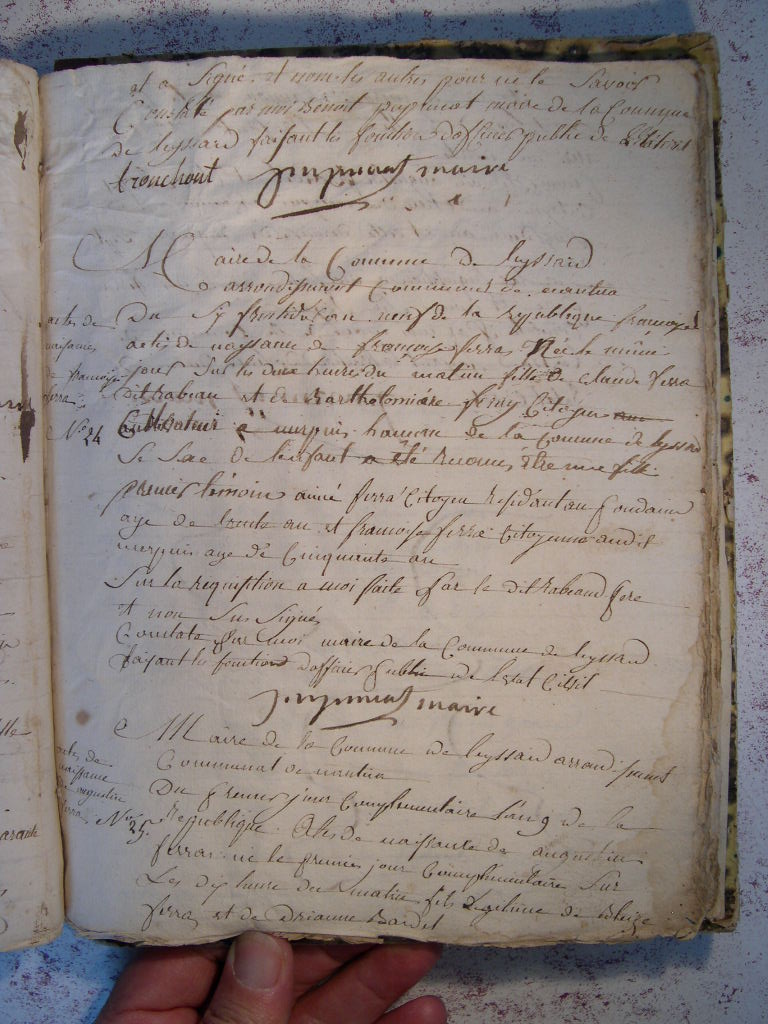 et a Signé et nom les autres pour ne le Savoir
Constaté par moi Benoit maire de la Commune
de leyssard faisant les fonctions d'officier public de
tronchont maire
Maire de la Commune de leyssard
arrondissement Communal de nantua
Du fructidor l'an neuf de la republique françoise
acte de naissance de françoise ferra Née le même
jour Sur les deux heures du matin fille de Claude ferra
dit rabiau et de Bartholomiere Citoyen
Cultivateur a merpuis hameau de la Commune de leyssard
Le Sexe de l'enfant a eté reconus Etre une fille
premier témoin aimé ferra Citoyen residant au
age de trente an et françoise ferra Citoyenne audit
merpuis age de Cinquante an
Sur la requisition a moi faite par le dit rabiaud pere
et non Sus Signés
Constate par moi maire de la Commune de leyssard
faisant les fonctions d'officier public de letat Civil
maire
Maire de la Commune de leyssard arrondissement
Communal de nantua
Du premier jour Complementaire l'an 9 de la
Republique. Acte de naissance de augustin
ferra né le premier jour Complementaire Sur
Les dix heure du matin fils Legitime de
ferra et de Bardet
actes de
naissance
de françoise
ferra
No. 24
actes de
naissance
de augustin
ferra No. 25.